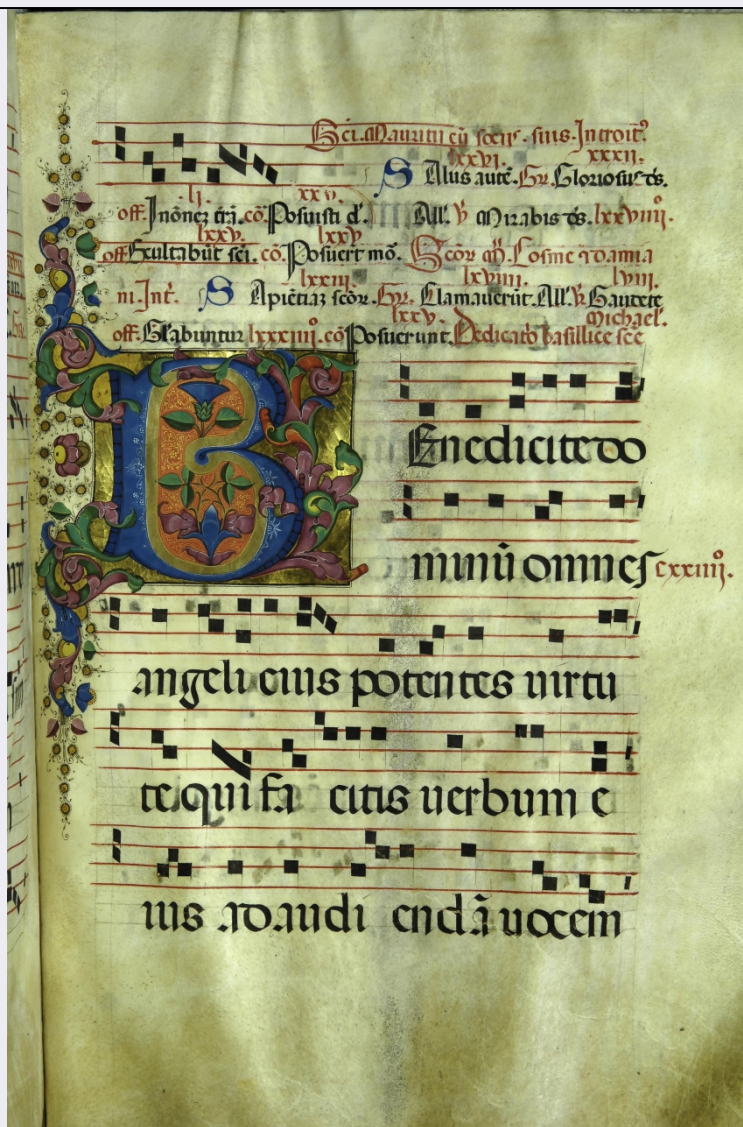 Sci. Mauritii cū socijs suis. Introitꝰ
xxvi. xxxii.
SAlus autē. Gr. Gloriosus ds.
li. xxv.
off. Inōnez trā. cō. Posuisti d. All. ꝟ Mirabis ds. lxxviiii.
lxxv. lxxv
off Exultabūt sci. cō. Posuert mō. Scōr Cosme ⁊ damia
lxxiii lxviiii. lviii.
ni. Int. SApiētiaz scōr. Gr. Clamauerūt. All. ꝟ. Gaudete
lxxv. Michael.
off. Glabuntur lxxxiiii. cō Posuerunt. Dedicatō basillice sce
BEnedicite do
minū omnes cxxiiii.
angeli eius potentes uirtu
te qui fa citis uerbum e
ius ad audi endā uocem